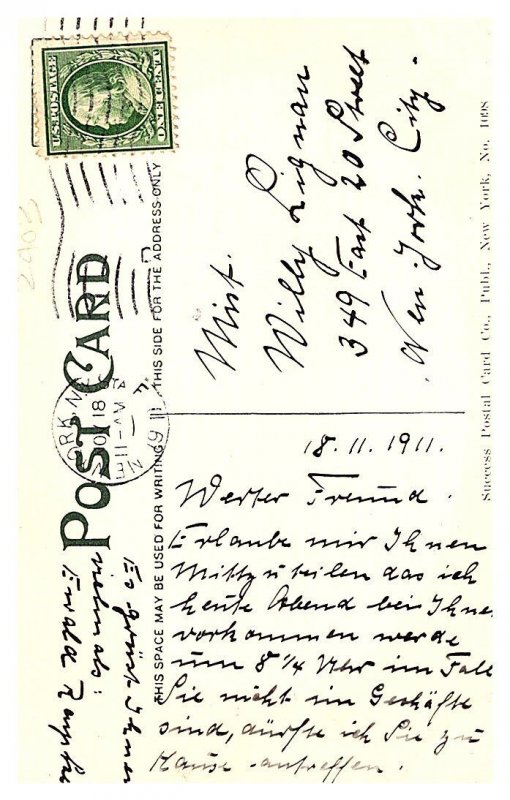 U.S. POSTAGE
ONE CENT
2903
POST CARD
THIS SPACE MAY BE USED FOR WRITING
THIS SIDE FOR THE ADDRESS ONLY
NEW YORK, N.Y.
NOV 18
11-AM
1911
Mist.
Willy Ligman
349 East 20 Street
New-York. City.
Success Postal Card Co., Publ., New York, No. 1098
18.11.1911.
Werter Freund.
Erlaube mir Ihnen
Mittzuteilen das ich
heute Abend bei Ihnen
vorkommen werde
um 8 1/4 Uhr im Fall
Sie nicht im Geschäfte
sind, dürfte ich Sie zu
Hause antreffen.
Es grüst Ihnen
vielmals:
Ewald